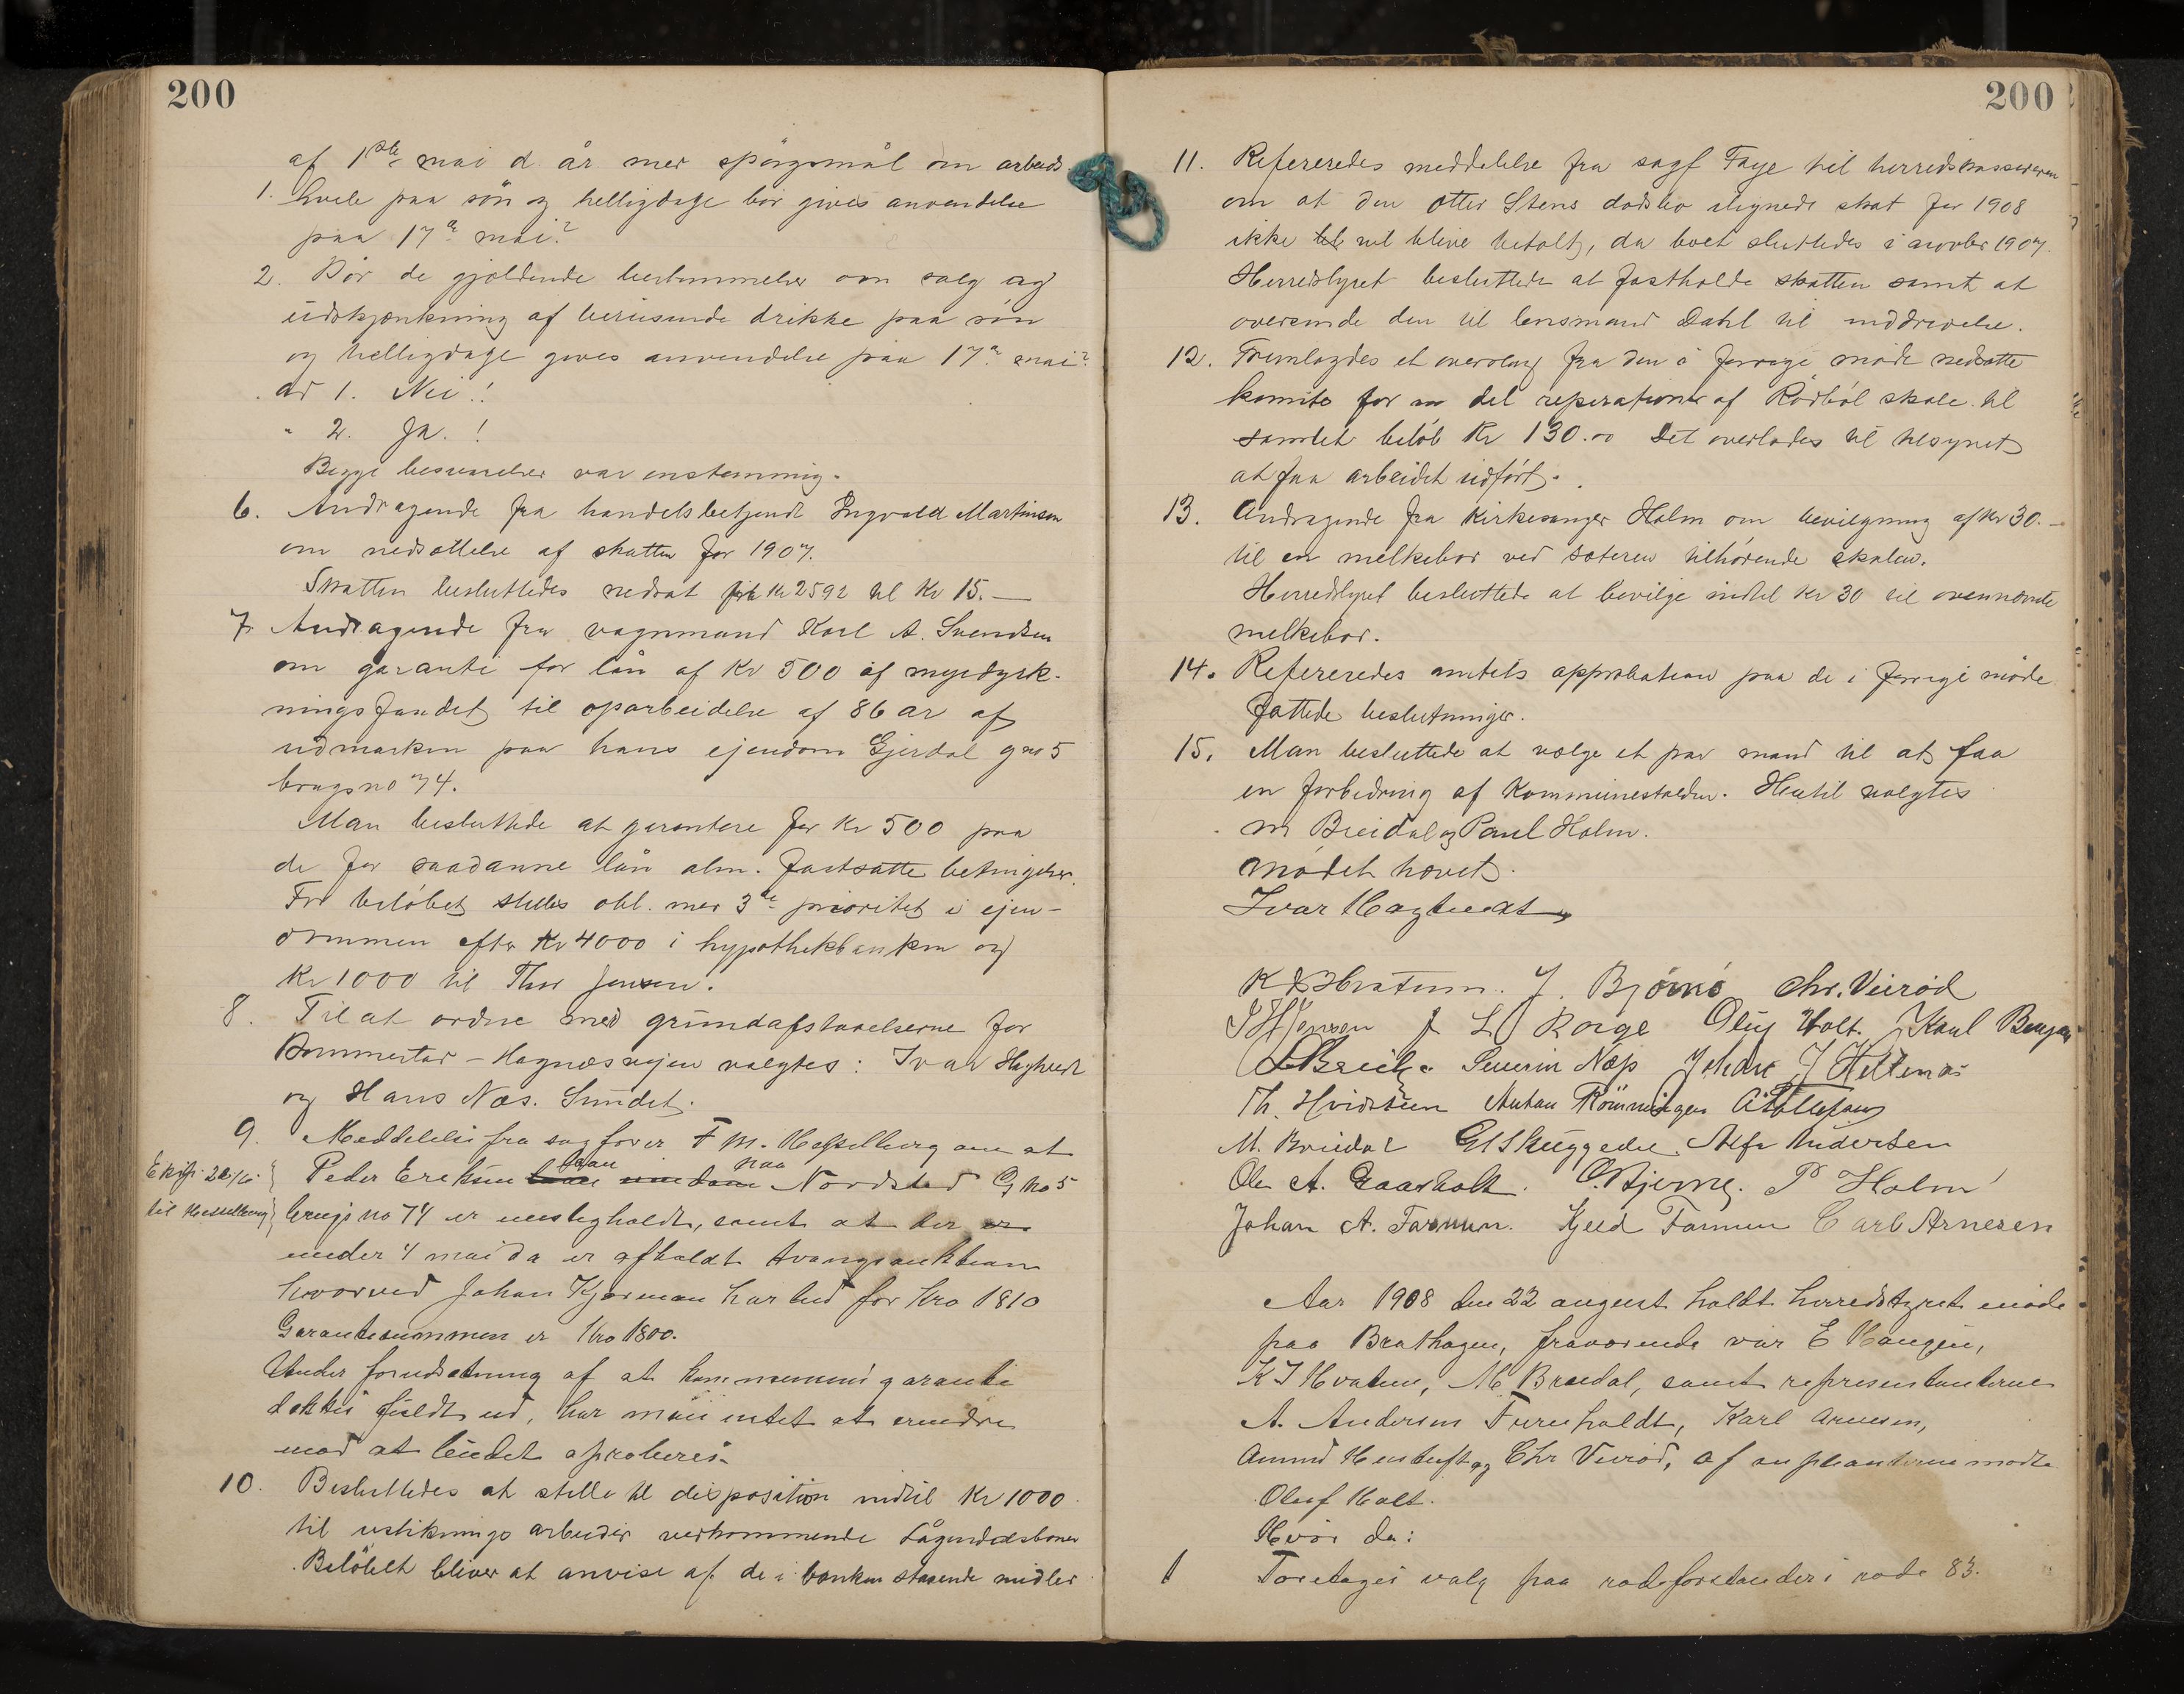 200
af 1ste mai d. år med spörgsmål om arbeids
1. hvile paa sön og helligdage bör gives anvendelse
paa 17de mai?
2. Bör de gjældende bestemmelser om salg og
udskjænkning af berusende drikke paa sön
og helligdage gives anvendelse paa 17de mai?
ad 1. Nei!
" 2. Ja.!
Begge besvarelser var enstemmig.
6. Andragende fra handelsbetjent Ingvald Martinsen
om nedsættelse af skatten for 1907.
Skatten besluttedes nedsat fra Kr 2592 til Kr 15.—
7. Andragende fra vognmand Karl A. Svendsen
om garanti for lån af Kr 500 af myrdyrk-
ningsfondet til oparbeidelse af 86 ar af
udmarken paa hans ejendom Gjerdal gno 5
brugsno 74.
Man besluttede at garantere for Kr 500 paa
de for saadanne lån alm. fastsatte betingelser.
For beløbet stilles obl. med 3de prioritet i ejen-
dommen efter Kr 4000 i hypothekbanken og
Kr 1000 til Thor Jensen.
8. Til at ordne med grundafstaaelserne for
Bommestad-Hagnæsvejen valgtes: Ivar Hagtvedt
og Hans Næs. Sundet.
9. Meddelelse fra sagfører F M. Hesselberg om at
Eksp. 20/6. Peder Eriksen laan paa Nordsted G No 5
til Hesselberg brugs no 74 er misligholdt, samt at der er
under 4 mai da er afholdt tvangsauktion
hvorved Johan Kjærman har bud for Kro 1810
Garantisummen er Kro 1800.
Under forudsetning af at kommunens garanti
dekkes fuldt ud, har man intet at erindre
mod at budet aproberes.
10. Besluttedes at stille til disposition indtil Kr 1000
til ustikningsarbeider vedkommende Lågendalsbanen
Beløbet bliver at anvise af de i banken staaende midler
200
11. Refereredes meddelelse fra sagf Faye til herredskassereren
om at den Otter Stens dødsbo ilignede skat for 1908
ikke vil blive betalt, da boet sluttedes i novbr 1907.
Herredstyret besluttede at fastholde skatten samt at
oversende den til lensmand Dahl til inddrivelse.
12. Fremlagdes et overslag fra den i forrige møde nedsatte
komite for en del reperationer af Rødbøl skole til
samlet beløb Kr 130.00 Det overlades til tilsynet
at faa arbeidet udført.
13. Andragende fra Kirkesanger Holm om bevilgning af Kr 30.—
til en melkebod ved sæteren tilhørende skolen.
Herredstyret besluttede at bevilge indtil Kr 30 til ovennævnte
melkebod.
14. Refereredes amtets approbation paa de i forrige møde
fattede beslutninger.
15. Man besluttede at vælge et par mand til at faa
en forbedring af Kommunestalden. Hertil valgtes
m Breidal og Paul Holm.
mødet hævet.
Ivar Hagtvedt
J. Bjørnø Chr. Veirød
Oluf Holt. Karl
Severin Næss
Th. Hvidsteen Antan Rönningen A. Tollefsen
M. Breidal G H Skuggedal. Alfr Andersen
Ole A. Gaasholt. O. Bjerne. P Holm
Johan A. Farmen. Kjeld Farmen Carl Arnesen
Aar 1908 den 22 august holdt herredstyret møde
paa Brathagen, fraværende var E Haugen,
K J Hvatum, M. Breidal, samt representanterne
A. Andersen Furuholdt, Karl Arnesen,
Amund Hentuft og Chr Veirød, af supleanterne mødte
Oluf Holt.
Hvor da:
1 Foretages valg paa rodeforstander i rode 83.